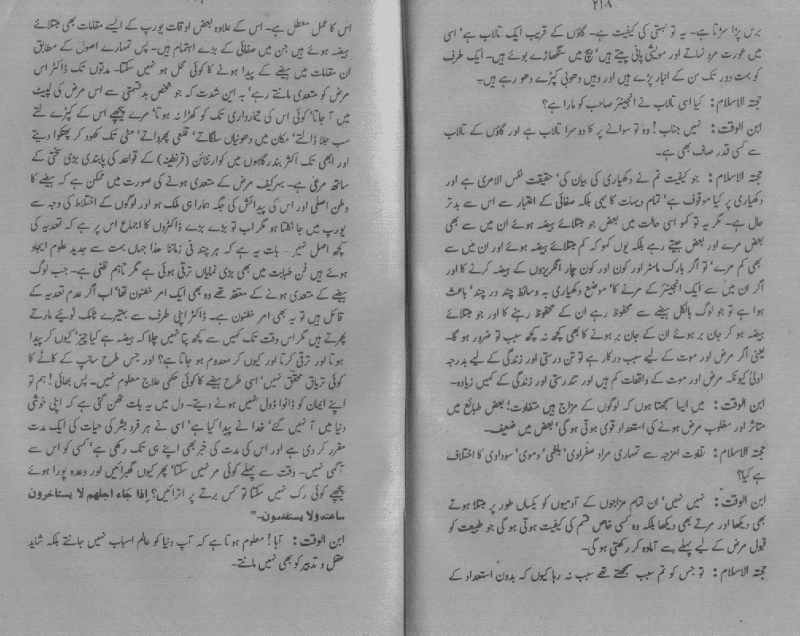 ۲۱۸
برس پڑا سڑتا ہے۔ یہ تو بستی کی کیفیت ہے۔ گاؤں کے قریب ایک تالاب ہے' اسی
میں عورت مرد نہاتے اور مویشی پانی پیتے ہیں' بیچ میں سنگھاڑے بوئے ہیں۔ ایک طرف
کو بہت دور تک سن کے انبار پڑے ہیں اور وہیں دھوبی کپڑے دھو رہے ہیں۔
حجتہ الاسلام: کیا اسی تالاب نے انجینئر صاحب کو مارا ہے؟
ابن الوقت: نہیں جناب! وہ تو سوانے پر کا دوسرا تالاب ہے اور گاؤں کے تالاب
سے کسی قدر صاف بھی ہے۔
حجتہ الاسلام: جو کیفیت تم نے دکھیاری کی بیان کی' حقیقت نفس الامری ہے اور
دکھیاری پر کیا موقوف ہے' تمام دیہات کا یہی بلکہ صفائی کے اعتبار سے اس سے بدتر
حال ہے۔ مگر یہ تو کہو اسی حالت میں بعض جو جتلائے ہیضہ ہوئے ان میں سے بھی
بعض مرے اور بعض جیتے رہے بلکہ یوں کہو کہ کم جتلائے ہیضہ ہوئے اور ان میں سے
بھی کم مرے' تو اگر بارک ماسٹر اور کون اور کون چار انگریزوں کے ہیضہ کرنے کا اور
اگر ان میں سے ایک انجینئر کے مرنے کا' موضع دکھیاری بہ وسائط چند در چند' باعث
ہوا ہے تو جو لوگ بالکل ہیضے سے محفوظ رہے ان کے محفوظ رہنے کا اور جو جتلائے
ہیضہ ہو کر جاں بر ہوئے ان کے جان بر ہونے کا بھی کچھ نہ کچھ سبب تو ضرور ہو گا۔
یعنی اگر مرض اور موت کے لیے سبب درکار ہے تو تن درستی اور زندگی کے لیے بدرجہ
اولیٰ کیونکہ مرض اور موت کے واقعات کم ہیں اور تندرستی اور زندگی کے کہیں زیادہ۔
ابن الوقت: میں ایسا سمجھتا ہوں کہ لوگوں کے مزاج ہیں متفاوت' بعض طبائع میں
متاثر اور مغلوب مرض ہونے کی استعداد قوی ہوتی ہو گی' بعض میں ضعیف۔
حجتہ الاسلام: تفاوت امزجہ سے تمہاری مراد صفراوی' بلغمی' دموی' سوداوی کا اختلاف
ہے کیا؟
ابن الوقت: نہیں نہیں' ان تمام مزاجوں کے آدمیوں کو یکساں طور پر جتلا ہوتے
بھی دیکھا اور مرتے بھی دیکھا بلکہ وہ کسی خاص قسم کی کیفیت ہوتی ہو گی جو طبیعت کو
قبول مرض کے لیے پہلے سے آمادہ کر رکھتی ہو گی۔
حجتہ الاسلام: تو جس کو تم سبب سمجھتے تھے سبب نہ رہا کیوں کہ بدون استعداد کے
اس کا عمل معطل ہے۔ اس کے علاوہ بعض اوقات یورپ کے ایسے مقامات بھی جتلائے
ہیضہ ہوئے ہیں جن میں صفائی کے بڑے اہتمام ہیں۔ پس تمہارے اصول کے مطابق
ان مقامات میں ہیضے کے پیدا ہونے کا کوئی محل ہو نہیں سکتا۔ مدتوں تک ڈاکٹر اس
مرض کو متعدی مانتے رہے' بہ این شدت کہ جو شخص بدقسمتی سے اس مرض کی لپیٹ
میں آ جاتا' کوئی اس کی تیمارداری تک کو کھڑا نہ ہوتا' مرے پیچھے اس کے کپڑے لتے
سب جلا ڈالتے' مکان میں دھونیاں سلگاتے' قلعی پھرواتے' مٹی تک کھود کر پھنکوا دیتے
اور ابھی تک اکثر بندرگاہوں میں کوارنٹائن (قرنطینہ) کے قواعد کی پابندی بڑی سختی کے
ساتھ مرعی ہے۔ بہرکیف مرض کے متعدی ہونے کی صورت میں ممکن ہے کہ ہیضے کا
وطن اصلی اور اس کی پیدائش کی جگہ ہمارا ہی ملک ہو اور لوگوں کے اختلاط کی وجہ سے
یورپ میں جا نکلتا ہو مگر اب تو بڑے بڑے ڈاکٹروں کا اجماع اس پر ہے کہ تعدیہ کی
کچھ اصل نہیں۔ بات یہ ہے کہ ہر چند فی زماننا ھذا جہاں بہت سے جدید علوم ایجاد
ہوئے ہیں فن طبابت میں بھی بڑی نمایاں ترقی ہوئی ہے مگر تاہم ظنی ہے۔ جب لوگ
ہیضے کے متعدی ہونے کے معتقد تھے وہ بھی ایک امر مظنون تھا' اب اگر عدم تعدیہ کے
قائل ہیں تو یہ بھی امر مظنون ہے۔ ڈاکٹر اپنی طرف سے بہتیرے ٹامک ٹوئیے مارتے
پھرتے ہیں مگر اس وقت تک کہیں سے کچھ پتا نہیں چلا کہ ہیضہ ہے کیا چیز' کیوں کر پیدا
ہوتا اور ترقی کرتا اور کیوں کر معدوم ہو جاتا ہے؟ اور جس طرح سانپ کے کاٹے کا
کوئی تریاق محقق نہیں' اسی طرح ہیضے کا کوئی حکمی علاج معلوم نہیں۔ پس بھائی! ہم تو
اپنے ایمان کو ڈانوا ڈول نہیں ہونے دیتے۔ دل میں یہ بات ٹھن گئی ہے کہ اپنی خوشی
دنیا میں آ نہیں گئے' خدا نے پیدا کیا ہے' اسی نے ہر فرد بشر کی حیات کی ایک مدت
مقرر کر دی ہے اور اس کی مدت کی خبر بھی اپنے ہی تک رکھی ہے' کسی کو اس سے
آگہی نہیں۔ وقت سے پہلے کوئی مر نہیں سکتا' پھر کیوں گھبرائیں اور وعدہ پورا ہوئے
پیچھے کوئی رک نہیں سکتا تو کس برتے پر اترائیں؟ اذا جاء اجلهم لا يستاخرون
ساعته ولا يستقدمون۔"
ابن الوقت: آہا! معلوم ہوتا ہے کہ آپ دنیا کو عالم اسباب نہیں جانتے بلکہ شاید
عقل و تدبیر کو بھی نہیں مانتے۔